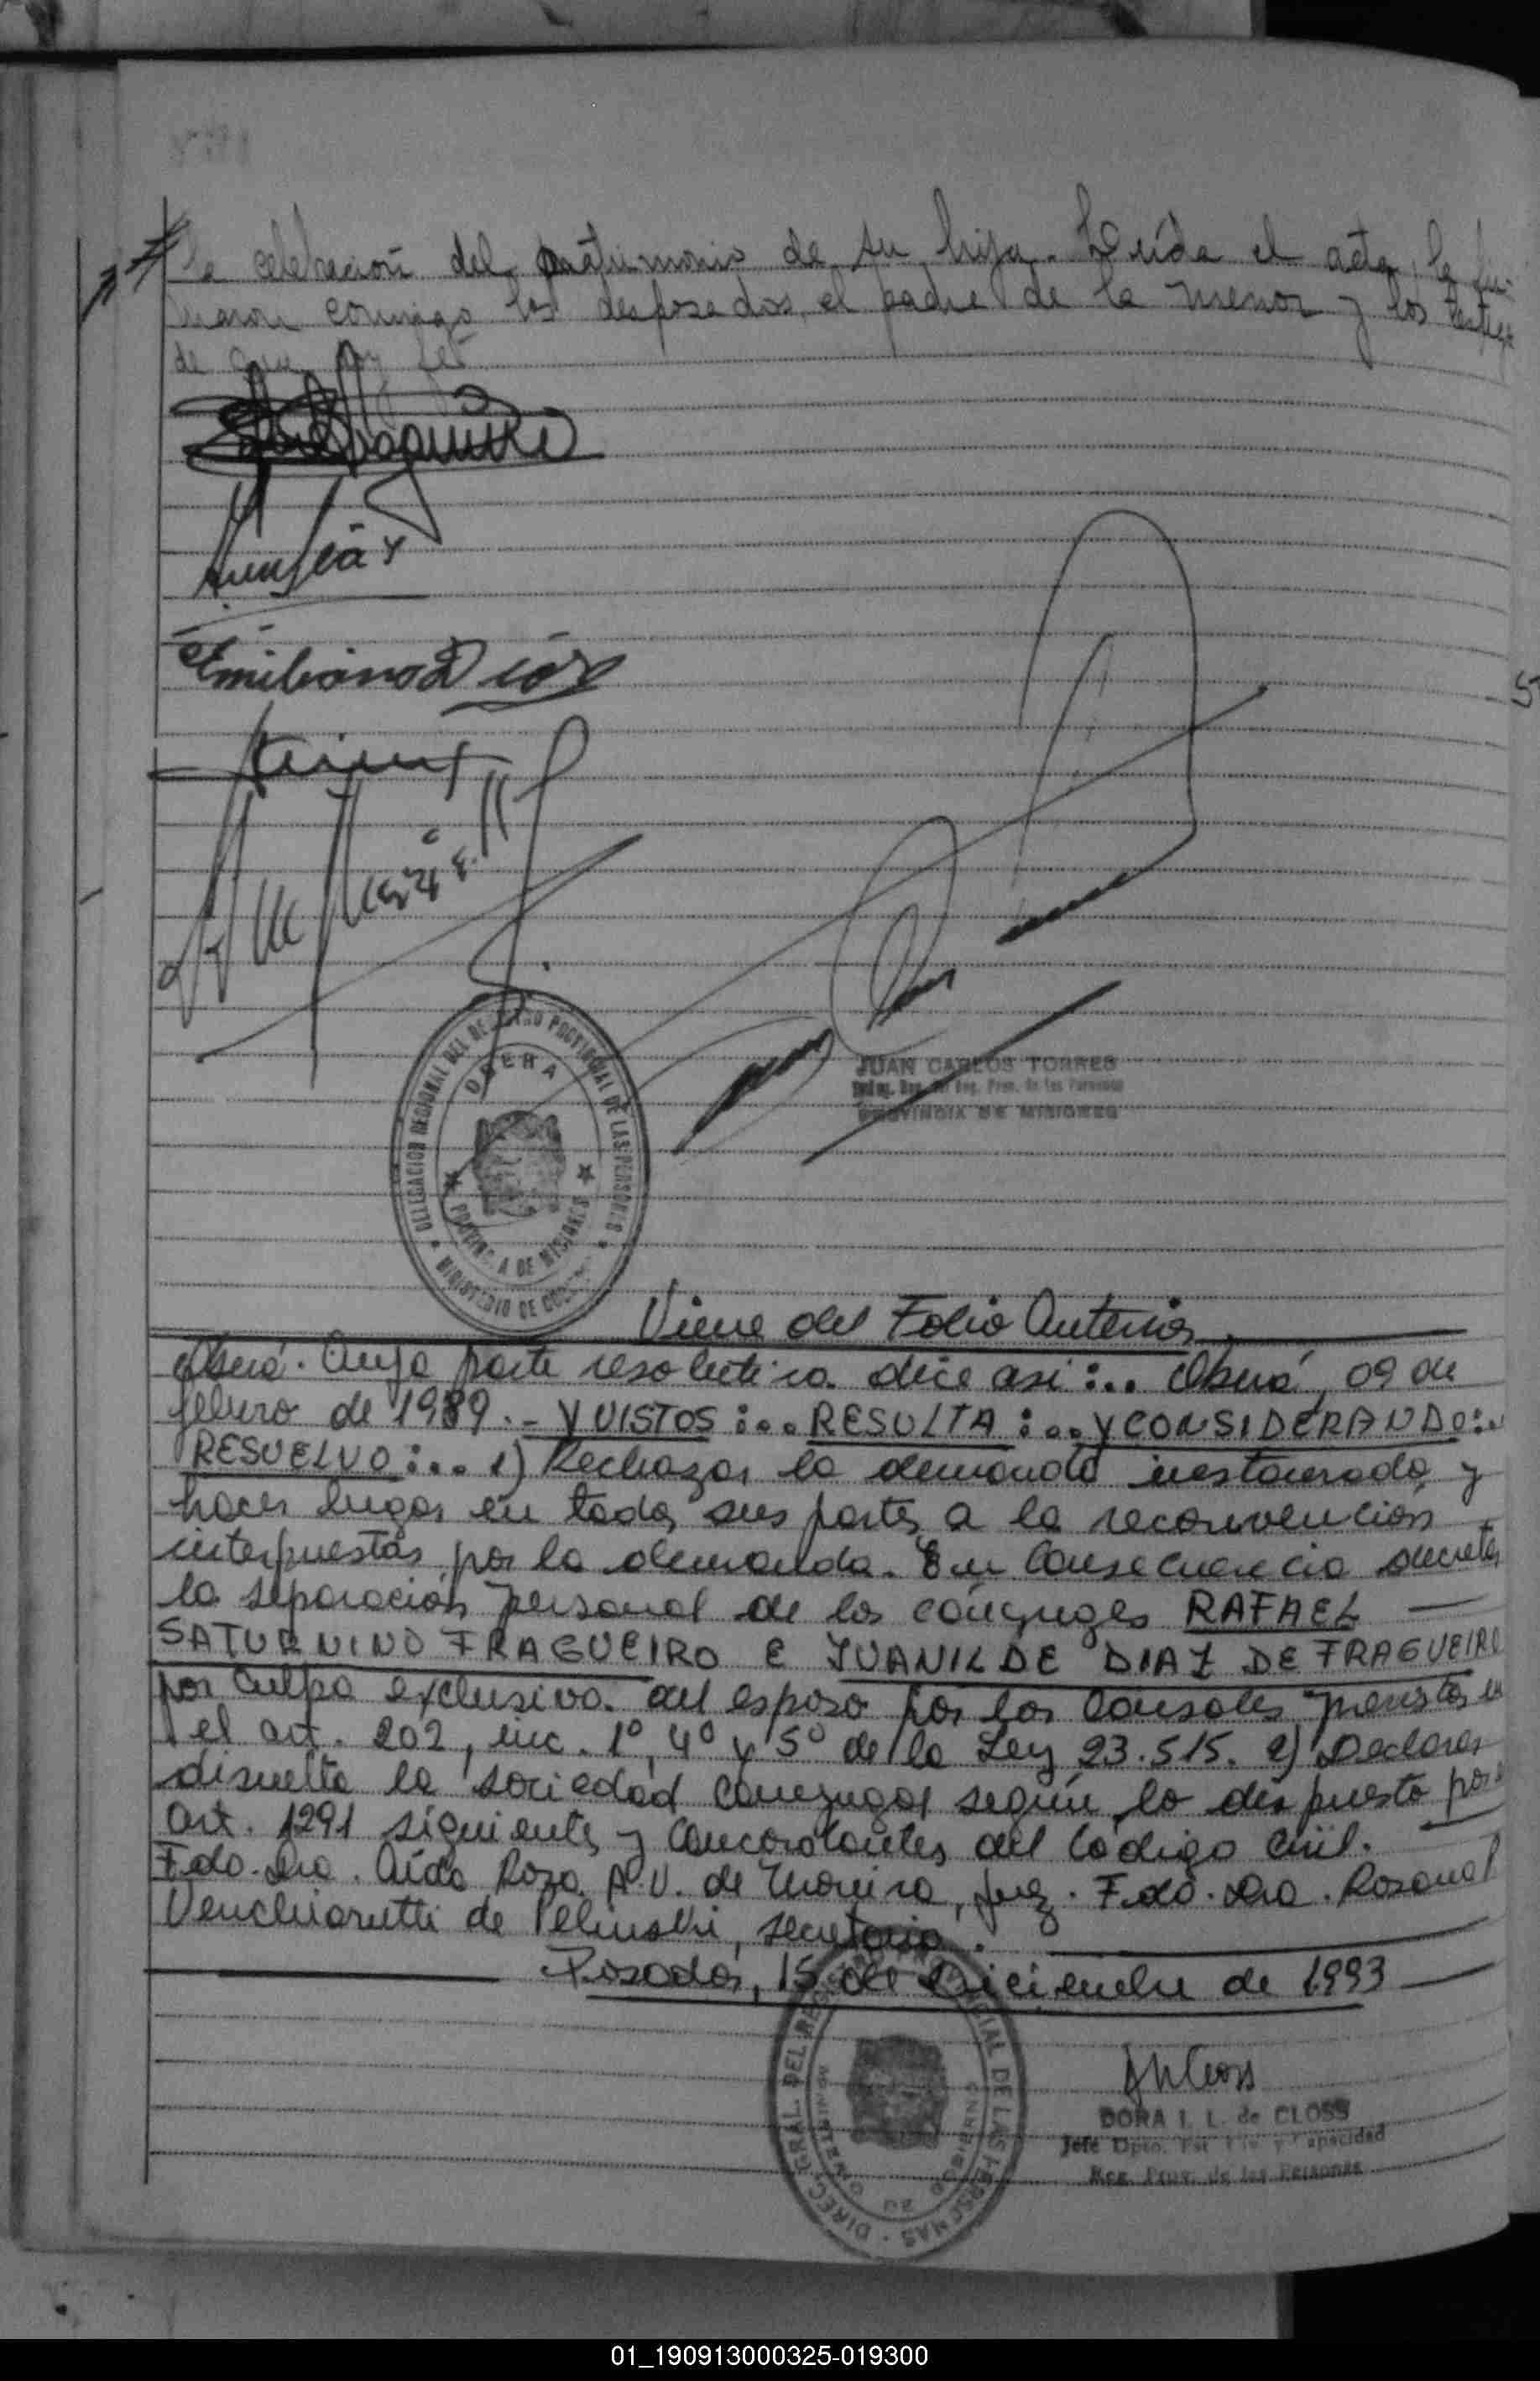 la celebración del matrimonio de su hija. Leída el acta, la fir-
maron conmigo los desposados, el padre de la menor y los testigos
de que doy fe
Emiliano Díaz
DELEGACION REGIONAL DEL REGISTRO PROVINCIAL DE LAS PERSONAS
OBERA
PROVINCIA DE MISIONES
MINISTERIO DE
JUAN CARLOS TORRES
Reg. Prov. de las Personas
PROVINCIA DE MISIONES
Viene del Folio Anterior
Oberá. Cuya parte resolutiva dice asi:... Oberá, 09 de
febrero de 1989.- Y VISTOS:... RESULTA:... Y CONSIDERANDO:..
RESUELVO:... 1) Rechazar la demanda instaurada y
hacer lugar en todas sus partes a la reconvención
interpuestas por la demanda. En Consecuencia decretar
la separación personal de los cónyuges RAFAEL
SATURNINO FRAGUEIRO E JUANILDE DIAZ DE FRAGUEIRO
por Culpa exclusiva del esposo por las Causales previstas en
el art. 202, inc. 1º, 4º y 5º de la Ley 23.515. 2) Declarar
disuelta la sociedad Conyugal según lo dispuesto por
art. 1291 siguientes y Concordantes del Código Civil.
Fdo. Dra. Aída Rosa A.V. de Moreira, juez. Fdo. Dra. Rosana
Venchiarutti de Pelinski, secretaria.
Posadas, 15 de Diciembre de 1993
DIREC. GRAL. DEL REGISTRO PROVINCIAL DE LAS PERSONAS
MINISTERIO DE GOBIERNO
DORA I. L. de CLOSS
Jefe Dpto. Est. Civ. y Capacidad
Reg. Prov. de las Personas
01_190913000325-019300